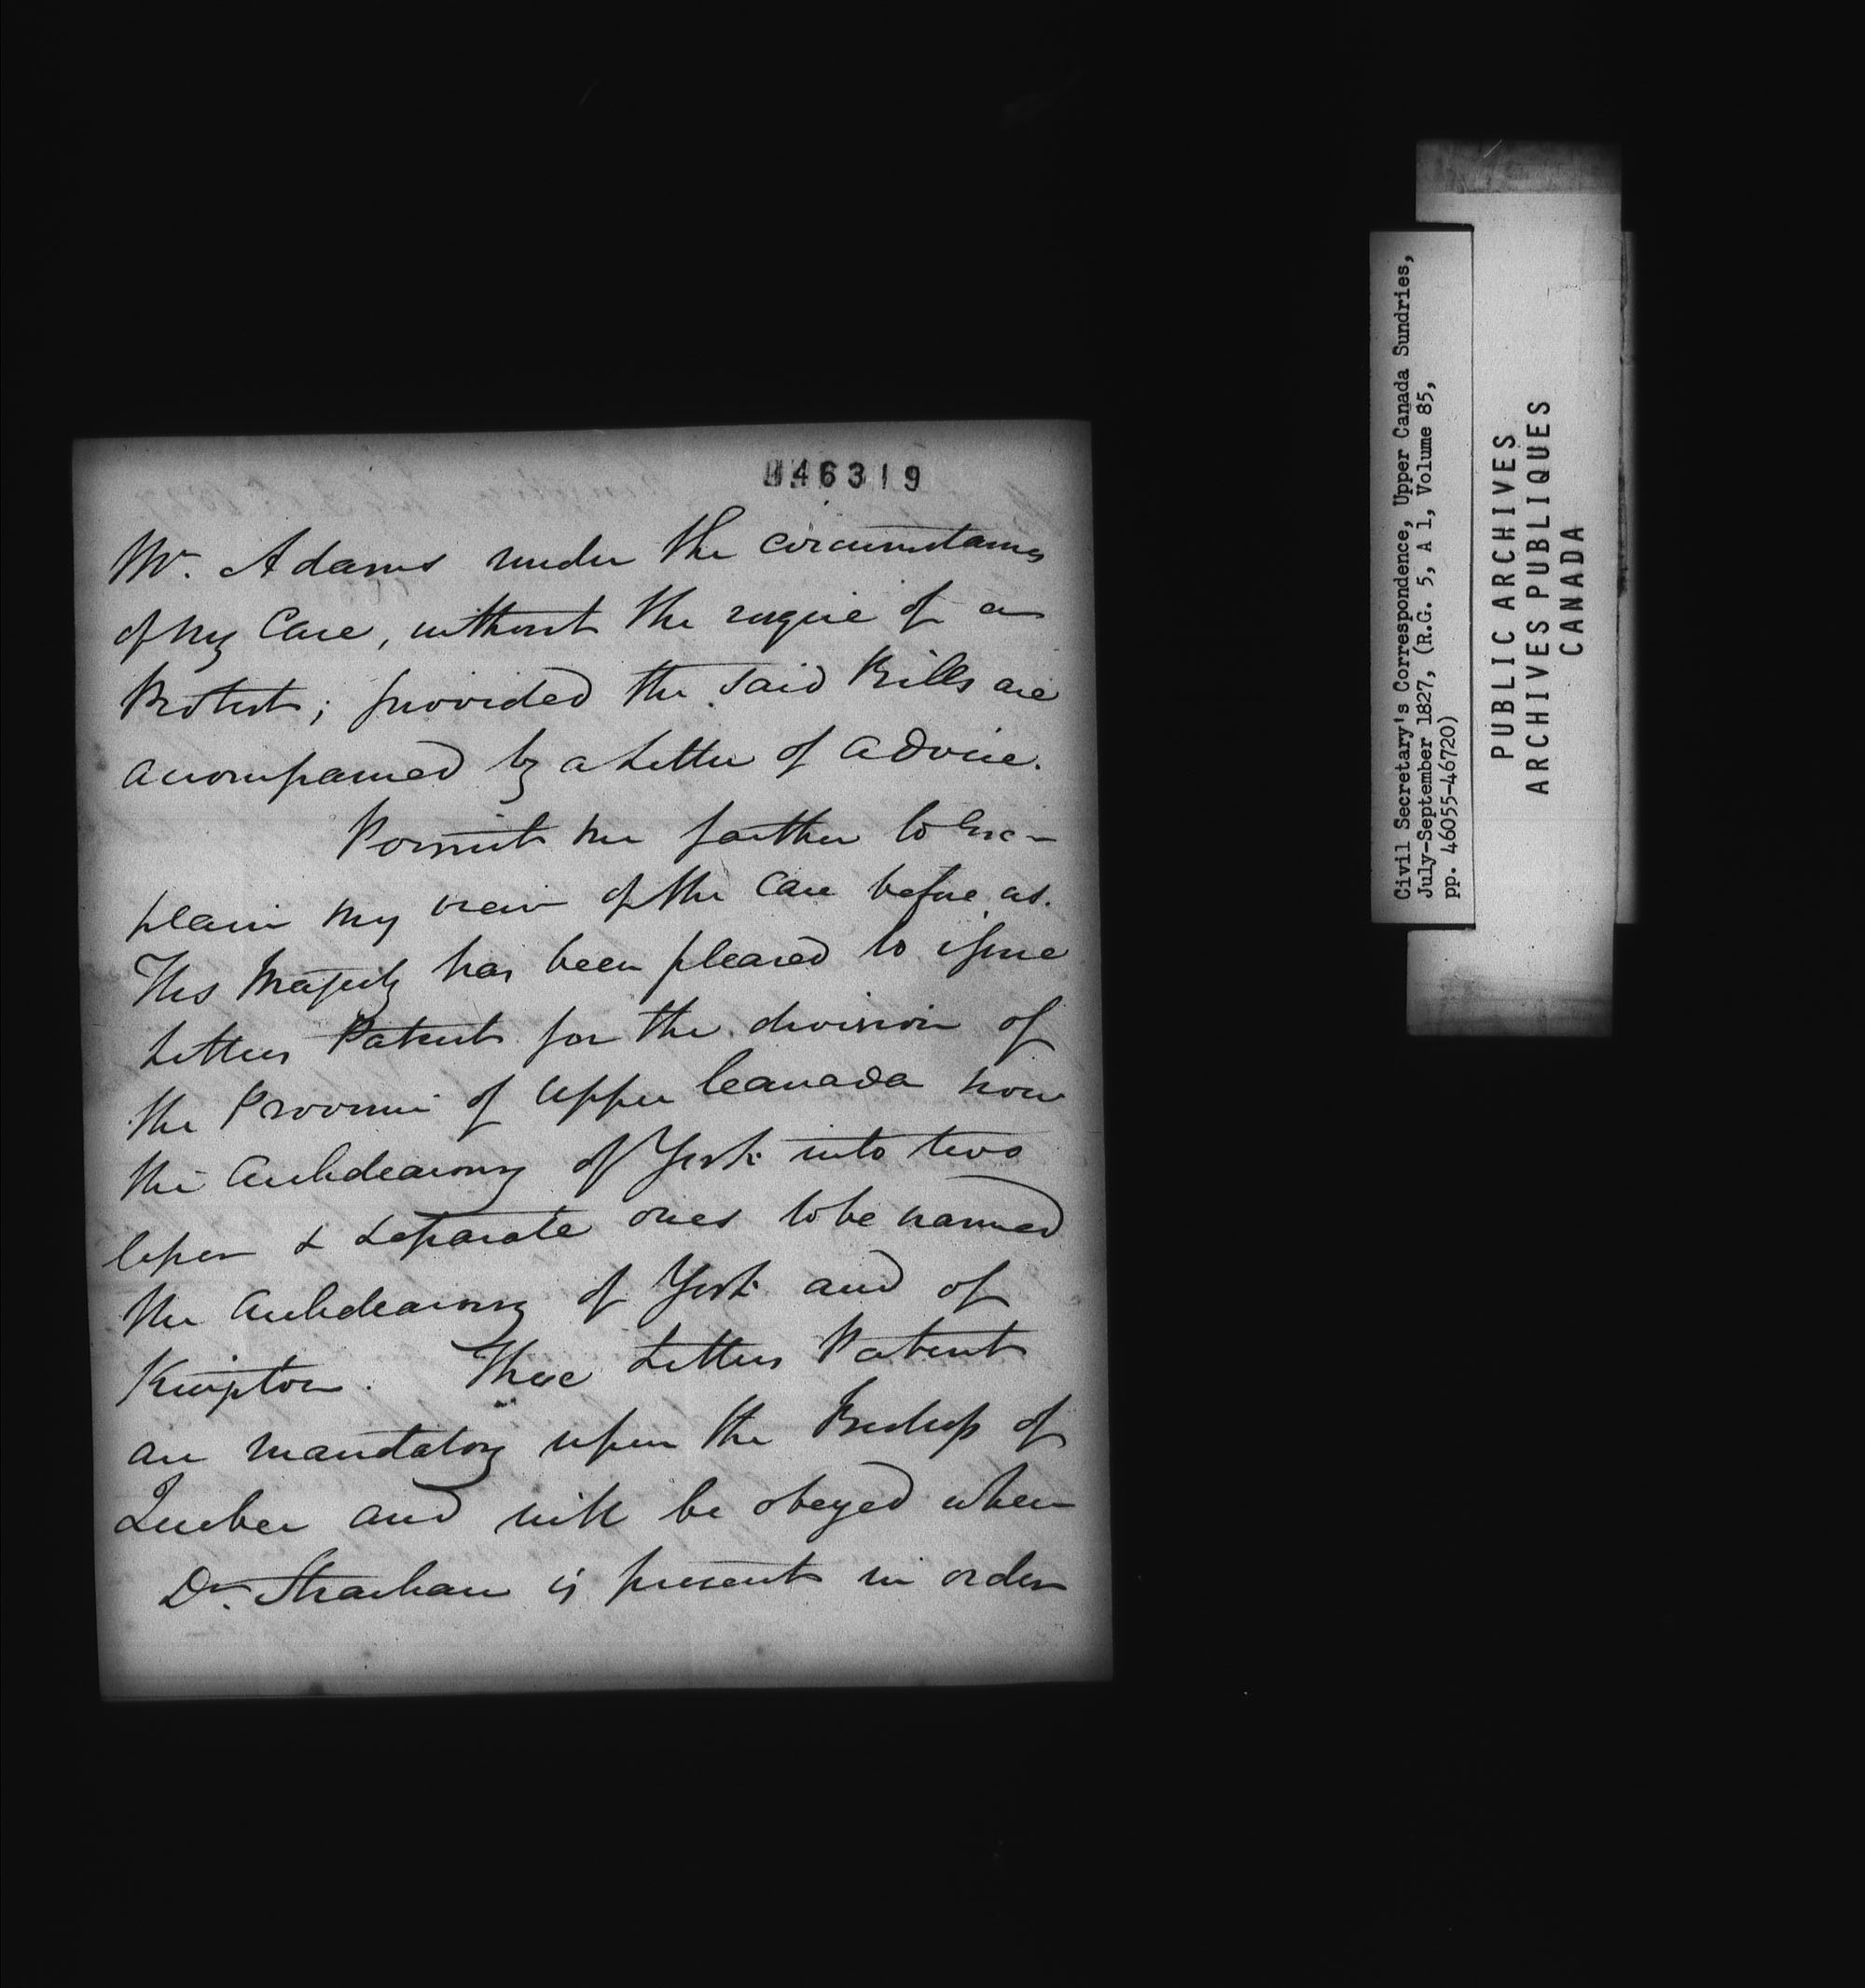 46319
Mr. Adams under the circumstances
of my Case, without the
Protest; provided the said Bills are
accompanied by a Letter of advice.
Permit me farther to ex-
plain my view of the case before us.
His Majesty has been pleased to issue
Letters Patent for the division of
the Province of Upper Canada now
the Archdeaconry of York into two
& separate ones to be named
the Archdeaconry of York and of
Kingston. These Letters Patent
are mandatory upon the Bishop of
Quebec and will be obeyed when
Dr. Strachan is present in order
Civil Secretary's Correspondence, Upper Canada Sundries,
July-September 1827, (R.G. 5, A 1, Volume 85,
pp. 46055-46720)
PUBLIC ARCHIVES
ARCHIVES PUBLIQUES
CANADA